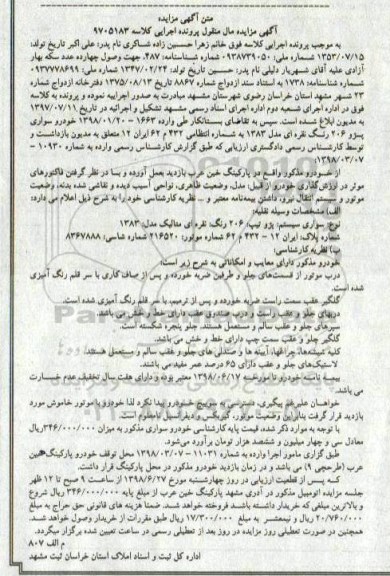 متن آگهی مزایده
آگهی مزایده مال منقول پرونده اجرایی کلاسه ۹۷۰۵۱۸۳
به موجب پرونده اجرایی کلاسه فوق خانم زهرا حسین زاده شاکری نام پدر: علی اکبر تاریخ تولد:
۱۳۵۳/۰۷/۱۵ شماره ملی: ۰۹۳۸۷۳۹۰۵۰ شماره شناسنامه: ۴۸۷، جهت وصول چهارده عدد سکه بهار
آزادی علیه آقای شهریار دلیلی نام پدر: حسین تاریخ تولد: ۱۳۴۷/۰۲/۲۴ شماره ملی: ۰۹۳۷۷۷۸۶۹۹
شماره شناسنامه: ۱۷۳۸ به استناد سند ازدواج شماره ۸۸۶۷ تاریخ ۱۳۷۵/۰۸/۱۳ دفترخانه ازدواج شماره
۲۳ شهر مشهد استان خراسان رضوی شهرستان مشهد مبادرت به صدور اجرائیه نموده و پرونده به کلاسه
فوق در اداره اجرای شعبه دوم اداره اجرای اسناد رسمی مشهد تشکیل و اجرائیه در تاریخ ۱۳۹۷/۰۷/۱۱
به مدیون ابلاغ شده است. سپس به تقاضای بستانکار طی وارده ۱۶۶۳ - ۱۳۹۸/۰۱/۲۰ خودرو سواری
پژو ۲۰۶ رنگ نقره ای مدل ۱۳۸۳ به شماره انتظامی ۴۳۲ م ۶۲ ایران ۱۲ متعلق به مدیون بازداشت و
توسط کارشناس رسمی دادگستری ارزیابی که طبق گزارش کارشناس رسمی وارده به شماره ۱۰۹۳۰ -
۱۳۹۸/۰۳/۰۷:
از خودرو مذکور واقع در پارکینگ خین عرب بازدید بعمل آورده و بسا در نظر گرفتن فاکتورهای
موثر در ارزش گذاری خودرو از قبیل: مدل، وضعیت ظاهری، نواحی آسیب دیده و نقاشی شده بدنه، وضعیت
موتور و سیستم انتقال نیرو، داشتن بیمه نامه معتبر و ... نظریه کارشناسی خود را به شرح ذیل اعلام می دارد:
الف) مشخصات وسیله نقلیه:
نوع: سواری سیستم: پژو تیپ: ۲۰۶ رنگ: نقره ای متالیک مدل: ۱۳۸۳
شماره پلاک: ایران ۱۲ - ۴۳۲ م ۶۲ شماره موتور: ۲۱۶۵۲۰ شماره شاسی: ۸۳۶۷۸۸۸
ب) نظریه کارشناسی:
خودرو مذکور دارای معایب و امکاناتی به شرح زیر است:
درب موتور از قسمت های جلو و طرفین ضربه خورده و پس از صاف کاری با سر قلم رنگ آمیزی
شده است.
گلگیر عقب سمت راست ضربه خورده و پس از ترمیم، با سر قلم رنگ آمیزی شده است.
درب های جلو و عقب راست و درب صندوق عقب دارای خط و خش می باشد.
سپرهای جلو و عقب سالم و مستعمل هستند. جلو پنجره شکسته است.
گلگیر جلو و عقب سمت چپ دارای خط و خش می باشد.
کلیه شیشه ها، چراغها، آیینه ها و صندلی های جلو و عقب سالم و مستعمل هستند.
لاستیک های جلو و عقب دارای ۶۵ درصد عمر مفید می باشند.
بیمه نامه خودرو تا مورخه ۱۳۹۸/۰۶/۱۷ معتبر بوده و دارای هفت سال تخفیف عدم خسارت
می باشد.
خواهان علیرغم پیگیری، دسترسی به سوییچ خودرو پیدا نکرد لذا خودرو با موتور خاموش مورد
بازدید قرار گرفت بنابراین وضعیت موتور، گیربکس و دیفرانسیل نامعلوم است.
با توجه به موارد ذکر شده، قیمت پایه کارشناسی خودرو سواری مذکور به میزان ۳۴۶/۰۰۰/۰۰۰ ریال
معادل سی و چهار میلیون و ششصد هزار تومان برآورد می شود.
طبق گزارش مامور اجرا وارده به شماره ۱۱۰۳۱ - ۱۳۹۸/۰۳/۰۷ محل توقف خودرو پارکینگ خین
عرب (طرحچی ۹) می باشد و در زمان بازدید خودرو مذکور در محل پارکینگ قرار داشت.
که پس از قطعیت ارزیابی در روز چهارشنبه مورخ ۱۳۹۸/۶/۲۷ از ساعت ۹ صبح تا ۱۲ ظهر
جلسه مزایده اتومبیل مذکور در آدرس مشهد پارکینگ خین عرب از مبلغ پایه ۳۴۶/۰۰۰/۰۰۰ ریال شروع
و بالاترین مبلغی که خریدار داشته باشد فروخته خواهد شد. ضمنا هزینه های قانونی حق حراج به مبلغ
۲۰/۷۶۰/۰۰۰ ریال و نیم عشر به مبلغ ۱۷/۳۰۰/۰۰۰ ریال طبق مقررات از خریدار وصول خواهد شد.
همچنین در صورت تعطیلی روز مزایده در روز بعد از تعطیلی رسمی در ساعت تعیین شده برگزار میگردد.
م الف ۸۰۷
اداره کل ثبت و اسناد املاک استان خراسان ثبت مشهد